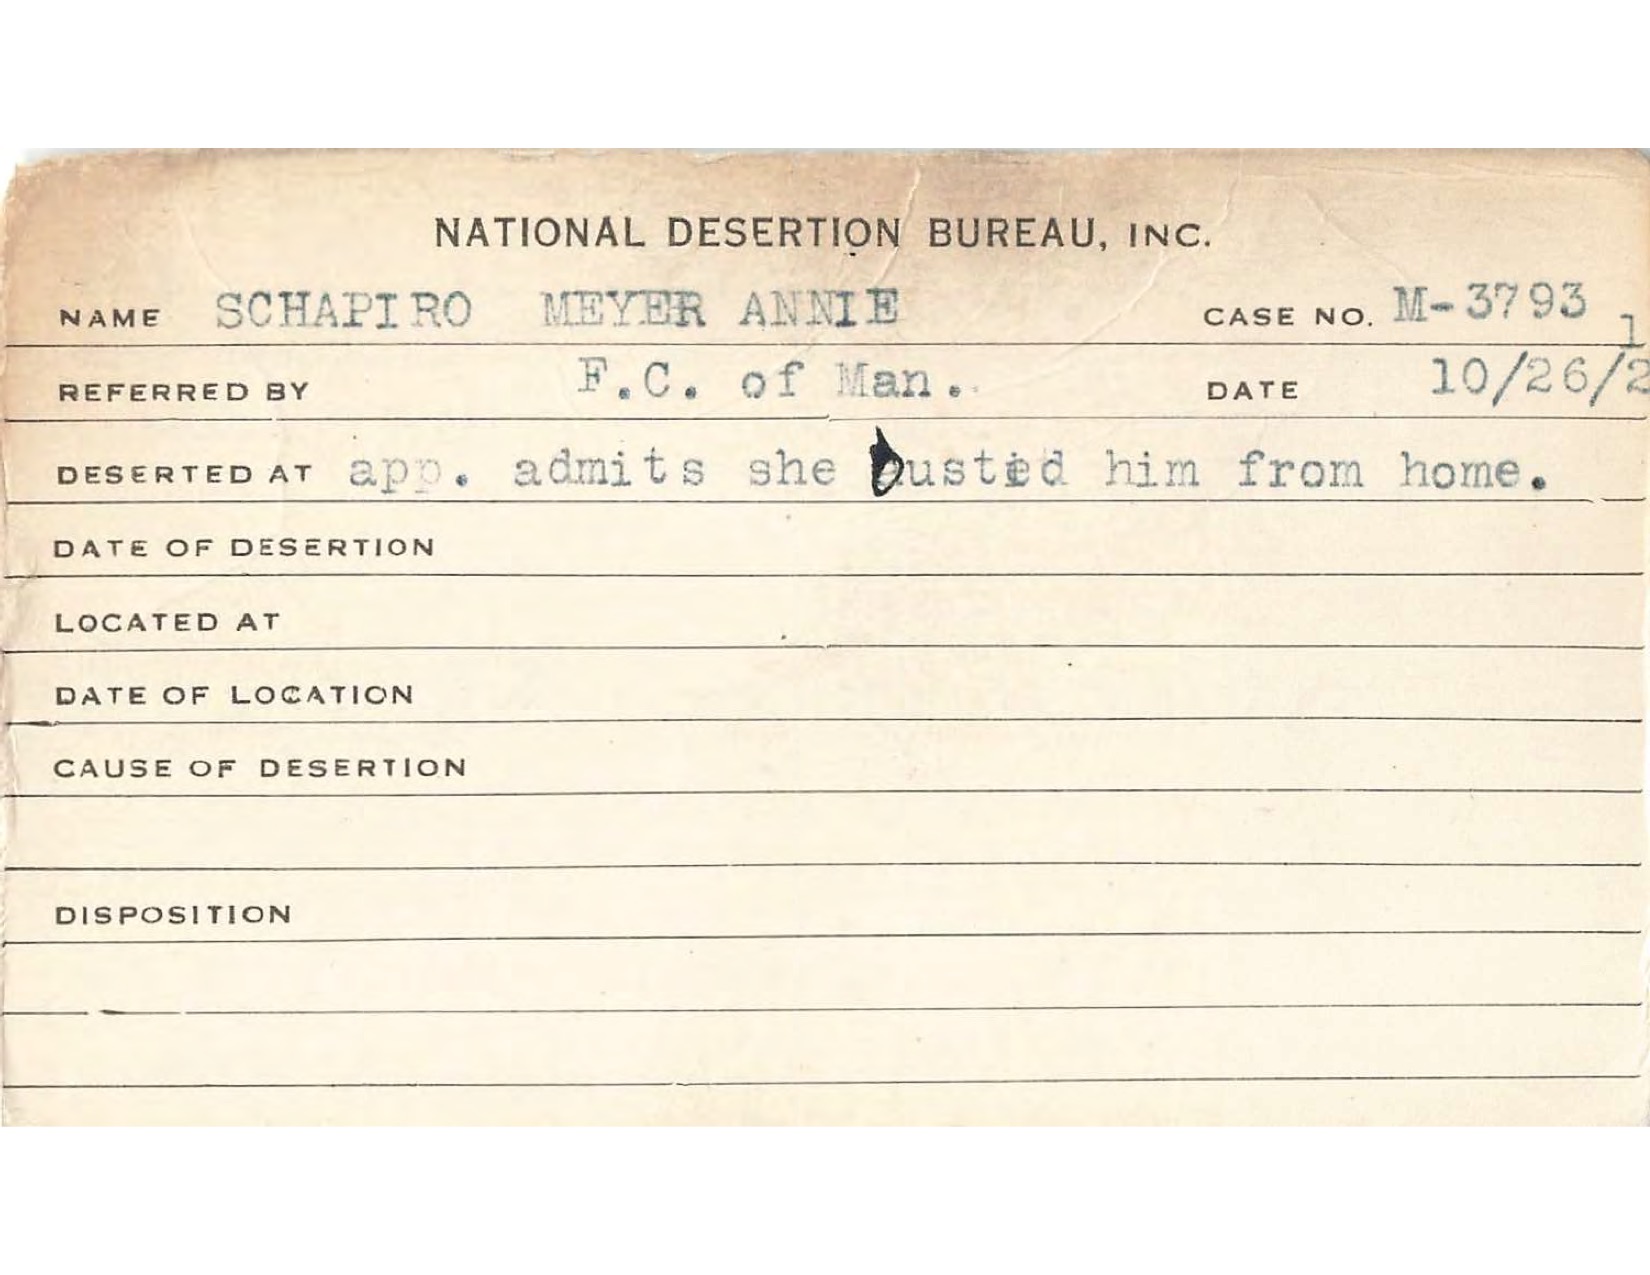 NATIONAL DESERTION BUREAU, INC.
NAME SCHAPIRO MEYER ANNIE CASE NO. M-3793 1
REFERRED BY F.C. of Man. DATE 10/26/2
DESERTED AT app. admits she ousted him from home.
DATE OF DESERTION
LOCATED AT
DATE OF LOCATION
CAUSE OF DESERTION
DISPOSITION